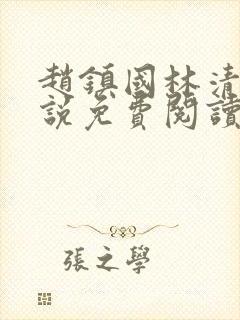 趙鎮國林清
說免費閱讀
張之學